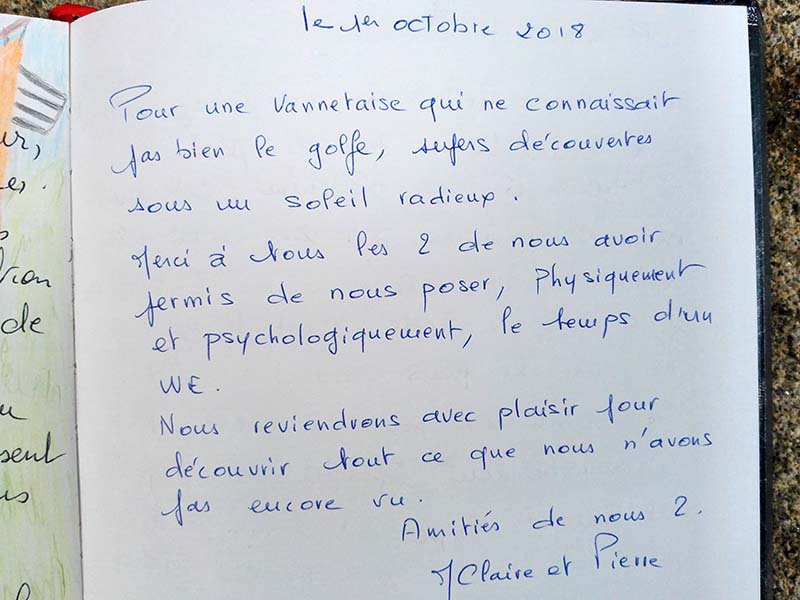 le 1er octobre 2018
Pour une Vannetaise qui ne connaissait
pas bien le golfe, supers découvertes
sous un soleil radieux.
Merci à tous les 2 de nous avoir
permis de nous poser, physiquement
et psychologiquement, le temps d'un
WE.
Nous reviendrons avec plaisir pour
découvrir tout ce que nous n'avons
pas encore vu.
Amitiés de nous 2.
M Claire et Pierre
de
sent